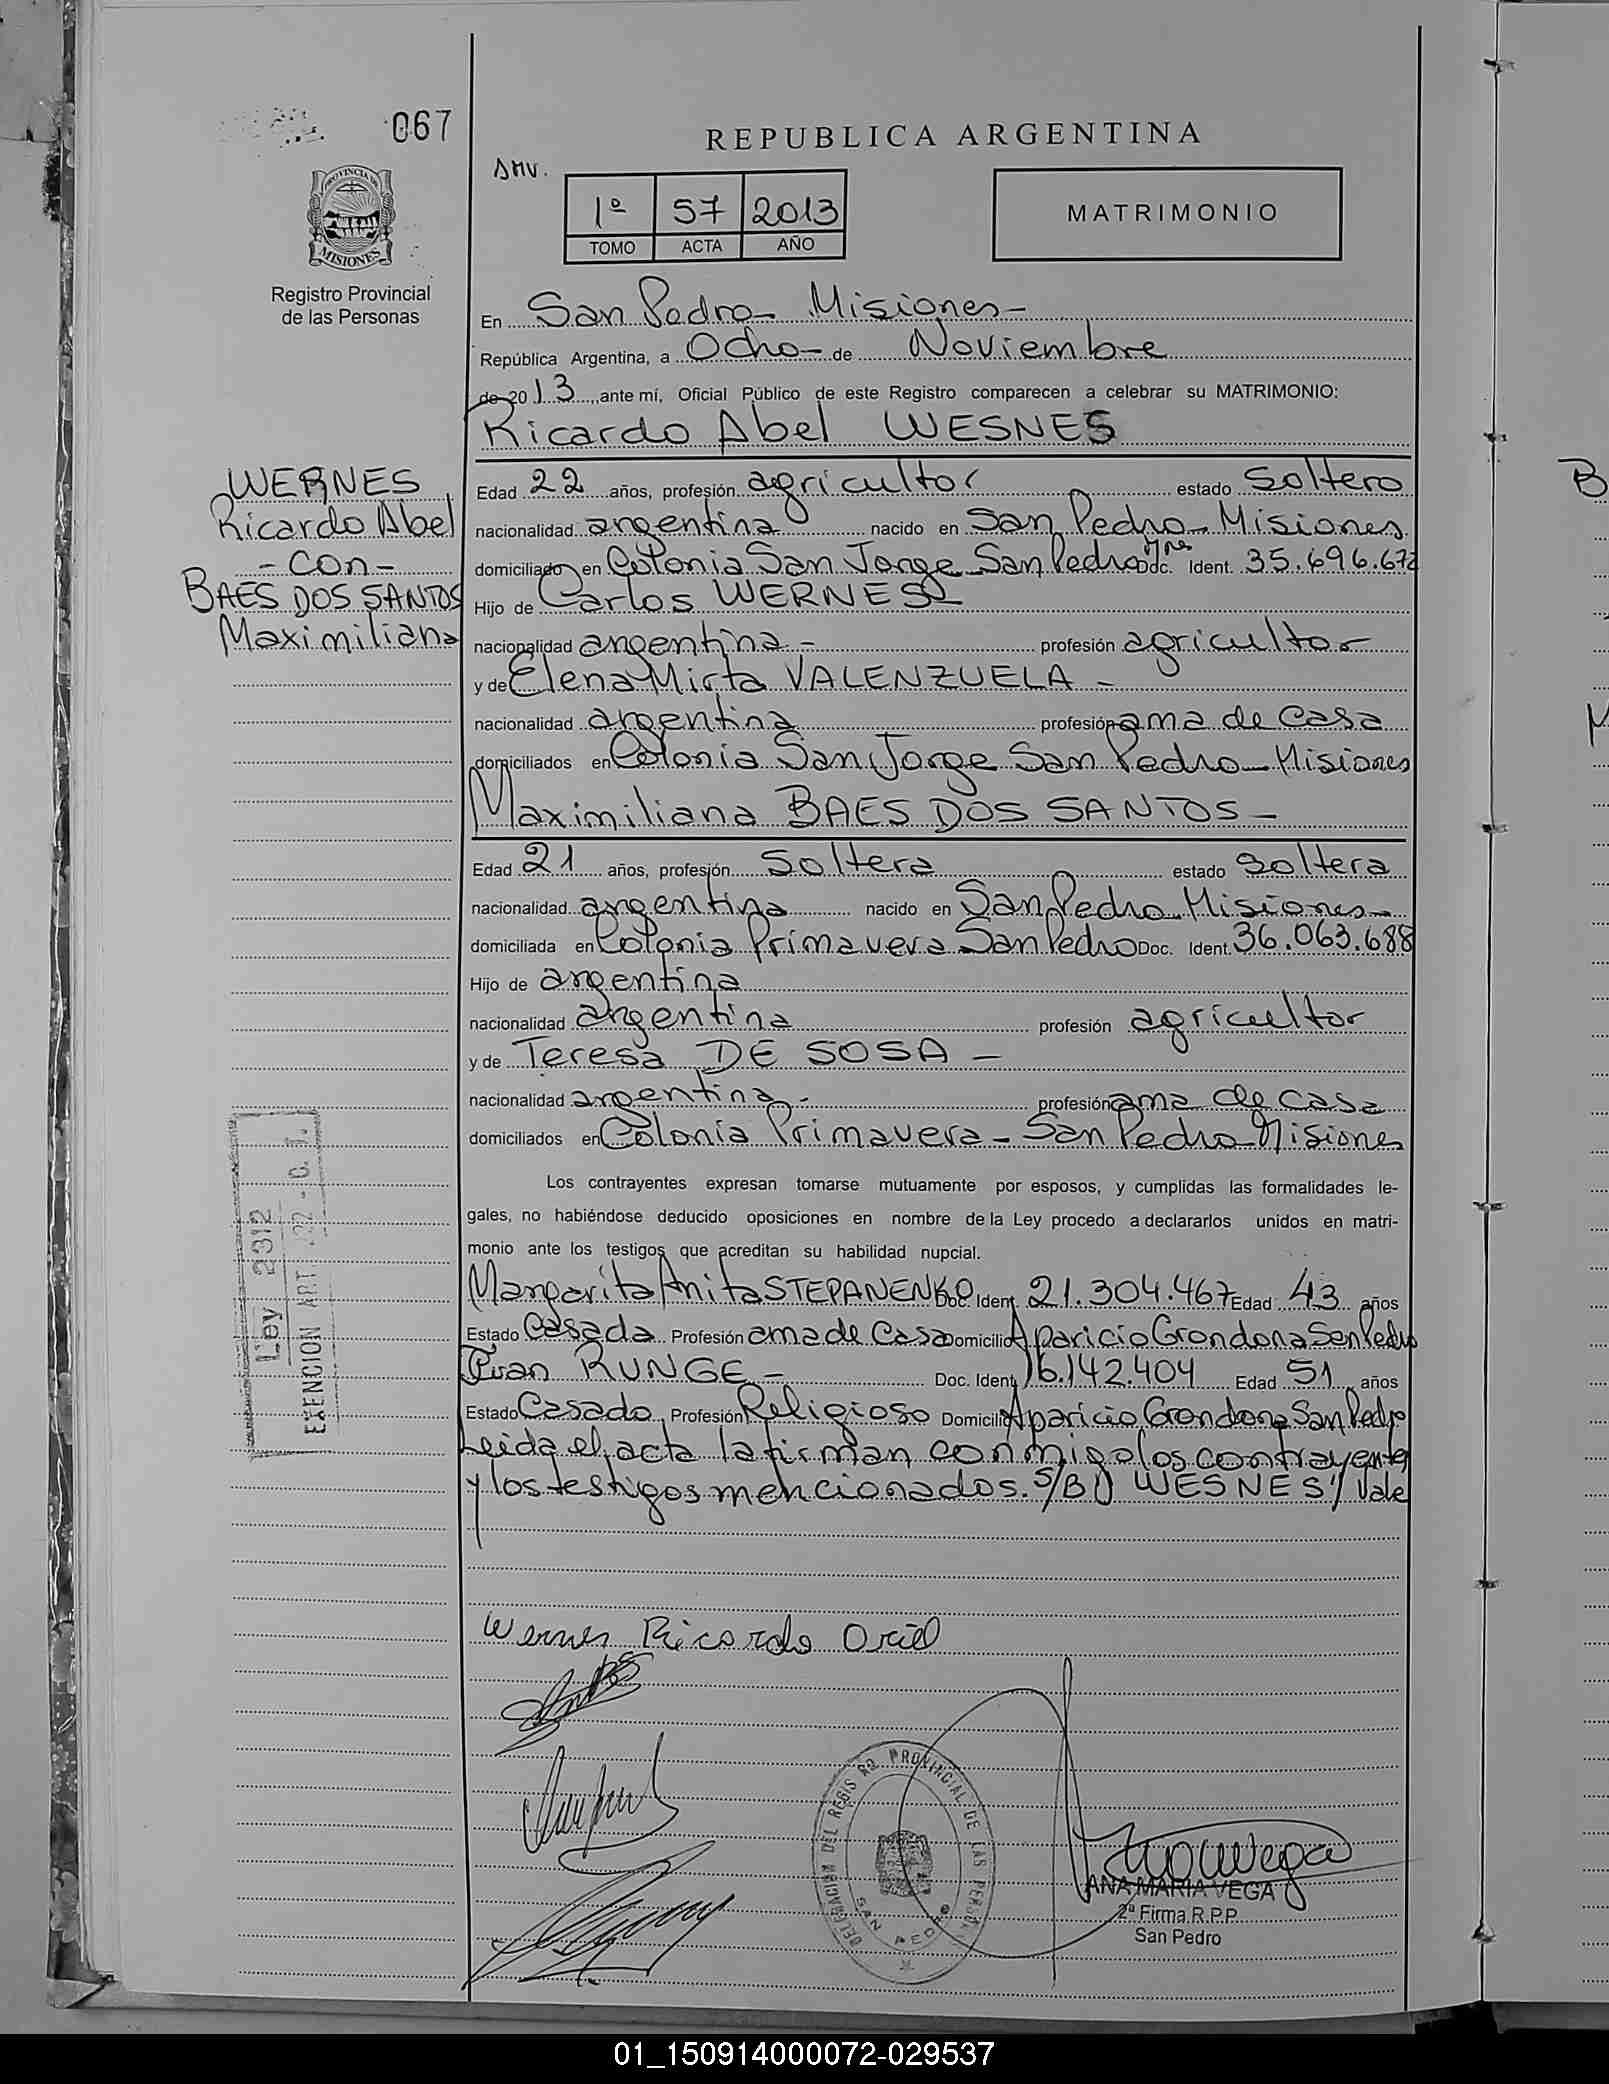 067
REPUBLICA ARGENTINA
AMV.
1º 57 2013
TOMO ACTA AÑO
MATRIMONIO
PROVINCIA DE
MISIONES
Registro Provincial
de las Personas
En San Pedro - Misiones -
República Argentina, a Ocho - de Noviembre
de 2013, ante mí, Oficial Público de este Registro comparecen a celebrar su MATRIMONIO:
Ricardo Abel WESNES
WERNES
Ricardo Abel
- con -
BAES DOS SANTOS
Maximiliana
Edad 22 años, profesión agricultor estado soltero
nacionalidad argentina nacido en San Pedro - Misiones
domiciliado en Colonia San Jorge San Pedro Mnes Doc. Ident. 35.696.672
Hijo de Carlos WERNES
nacionalidad argentina - profesión agricultor
y de Elena Mirta VALENZUELA -
nacionalidad argentina profesión ama de casa
domiciliados en Colonia San Jorge San Pedro - Misiones
Maximiliana BAES DOS SANTOS -
Edad 21 años, profesión soltera estado soltera
nacionalidad argentina nacido en San Pedro Misiones -
domiciliada en Colonia Primavera San Pedro Doc. Ident. 36.063.688
Hijo de argentina
nacionalidad argentina profesión agricultor
y de Teresa DE SOSA -
nacionalidad argentina - profesión ama de casa
domiciliados en Colonia Primavera - San Pedro Misiones
Ley 2312
EXENCION ART 222 - C. T.
Los contrayentes expresan tomarse mutuamente por esposos, y cumplidas las formalidades le-
gales, no habiéndose deducido oposiciones en nombre de la Ley procedo a declararlos unidos en matri-
monio ante los testigos que acreditan su habilidad nupcial.
Margarita Anita STEPANENKO Doc. Ident. 21.304.467 Edad 43 años
Estado Casada Profesión ama de casa Domicilio Aparicio Grondona San Pedro
Juan RUNGE - Doc. Ident. 16.142.404 Edad 51 años
Estado Casado Profesión Religioso Domicilio Aparicio Grondona San Pedro
Leida el acta la firman conmigo los contrayentes
y los testigos mencionados. S/B "WESNES" Vale
Wernes Ricardo Oriel
DELEGACION DEL REGISTRO PROVINCIAL DE LAS PERSONAS
SAN PEDRO
ANA MARIA VEGA
2ª Firma R.P.P.
San Pedro
01_150914000072-029537